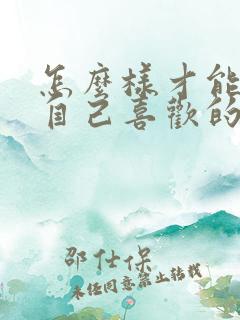 怎麼樣才能
自己喜歡的
邵仕保
未经同意禁止转载